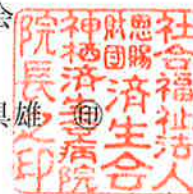 会
具雄 ㊞
社会福祉法人
恩賜
財団
済生会
神栖済生会病院
院長之印